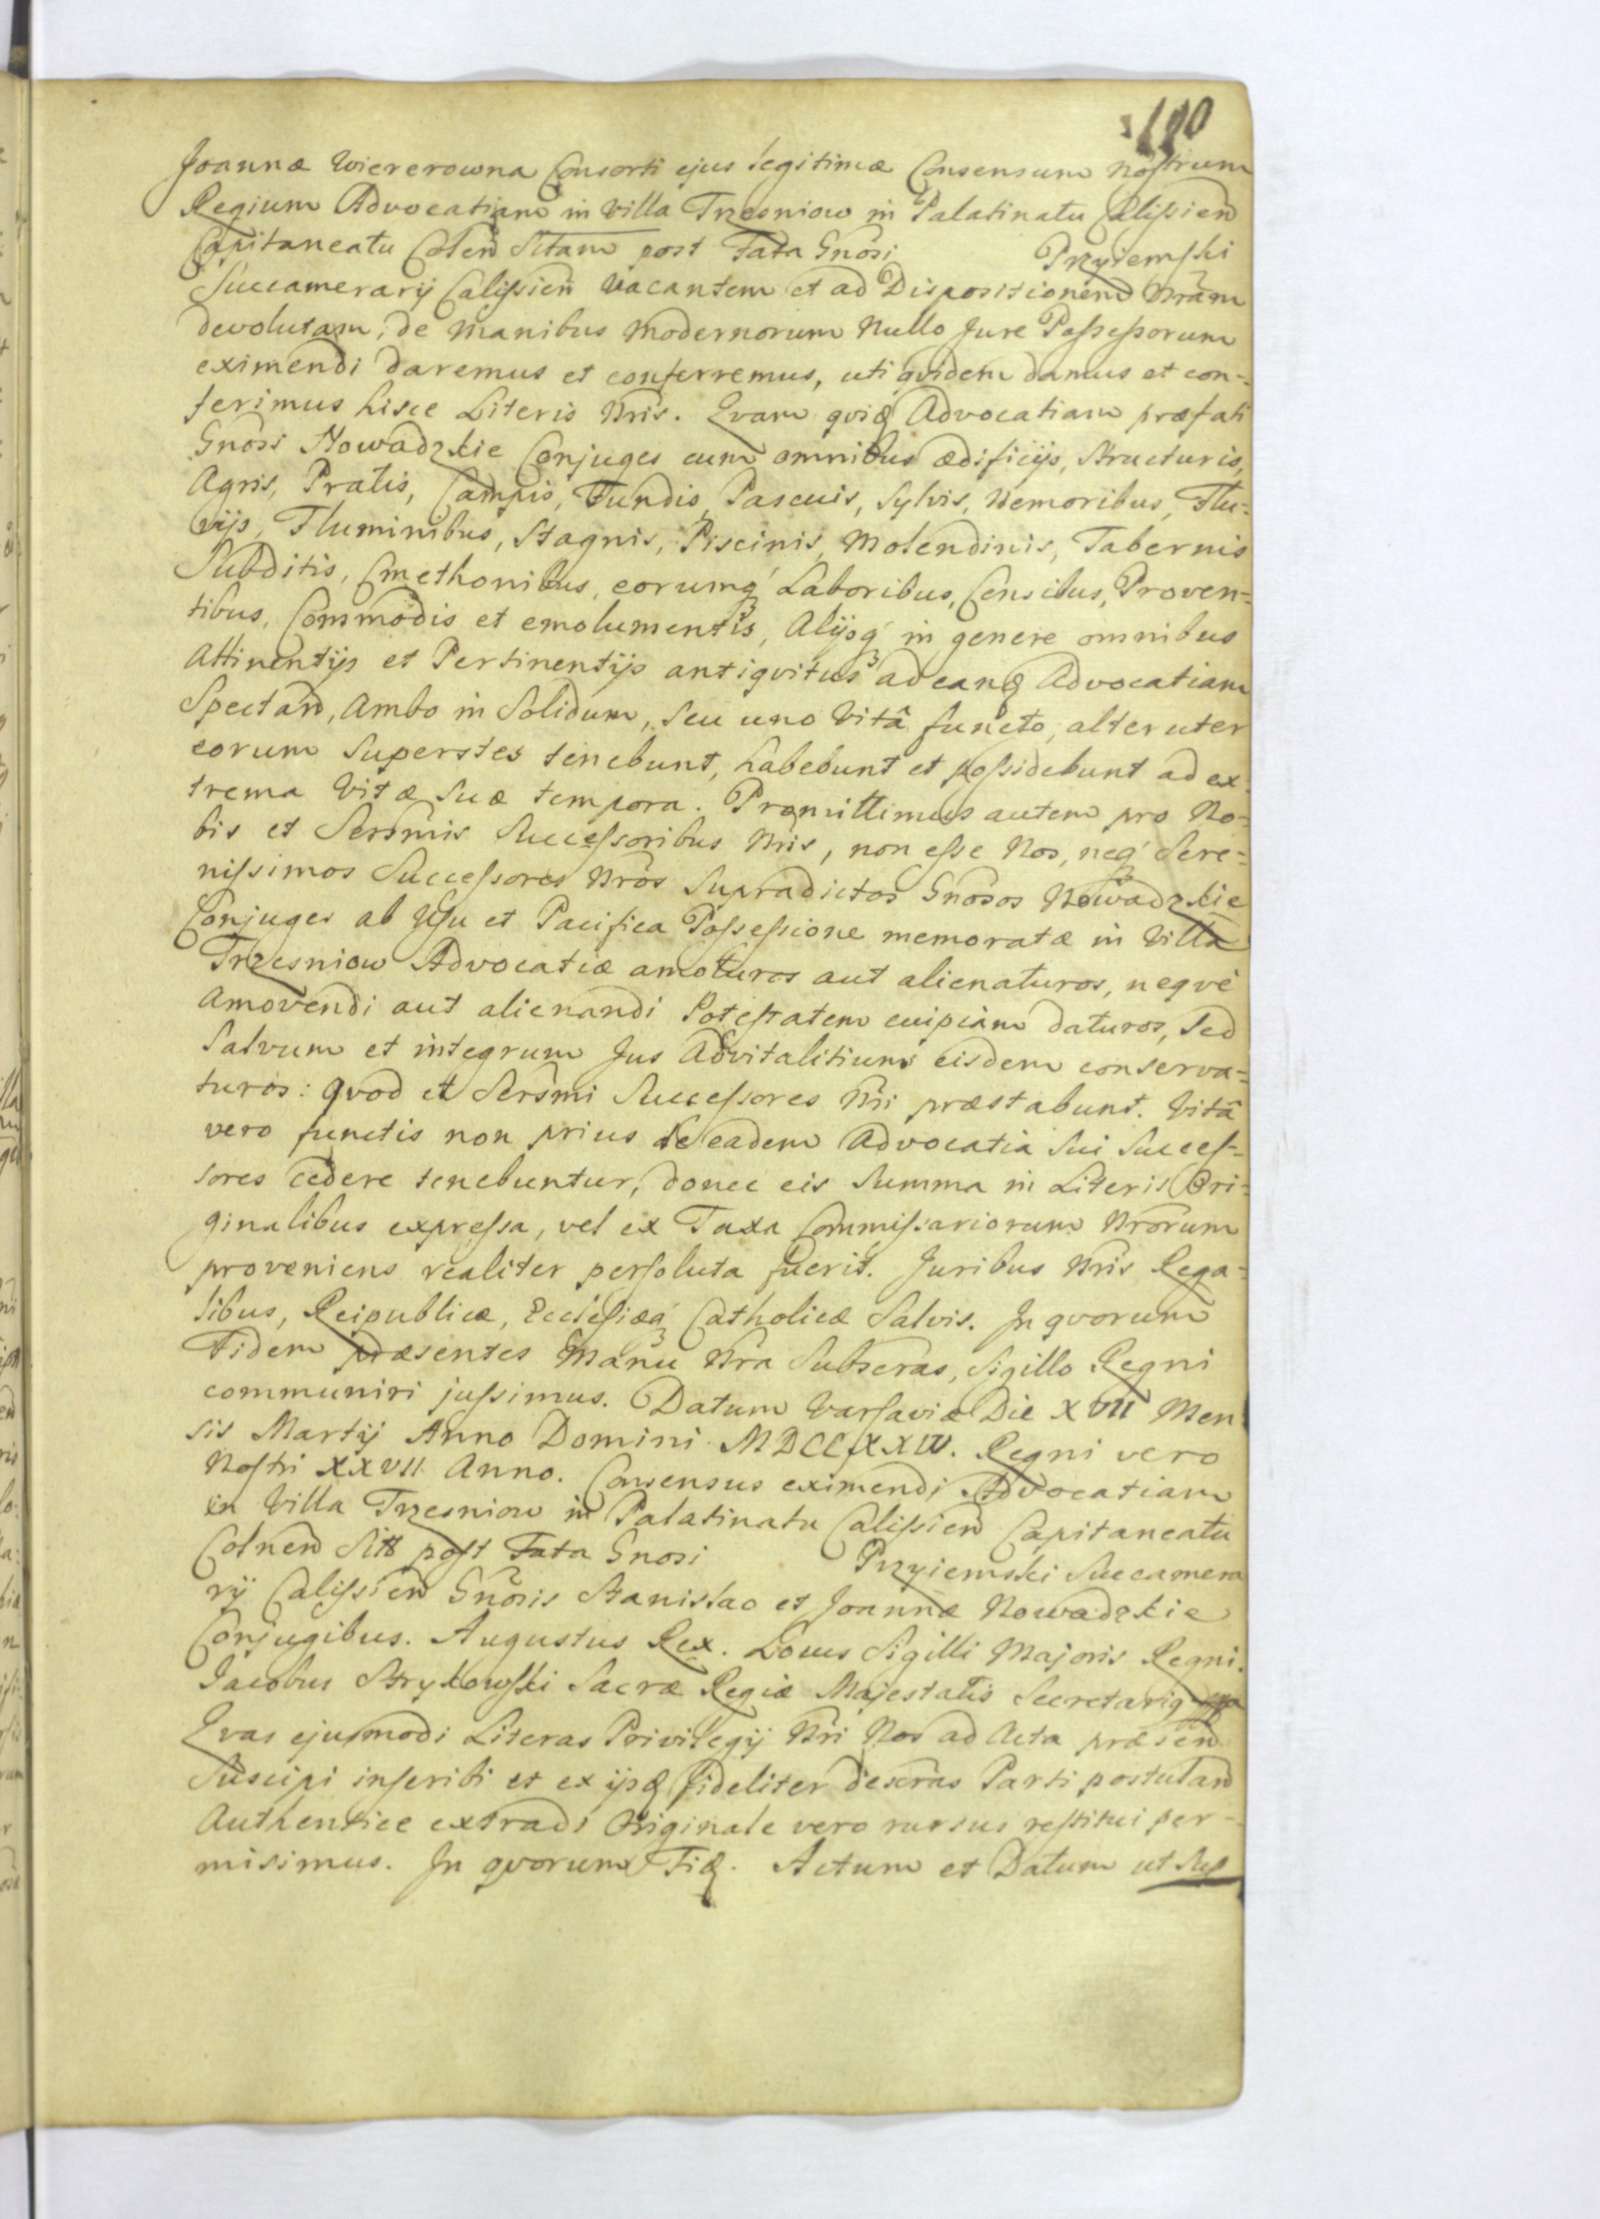 110
Joannæ Wiererowna Consorti ejus legitimæ Consensum nostrum
Regium Advocatiam in Villa Trzesniow in Palatinatu Calissien̄
Capitaneatu Colen̄ Sitam post Fata Gnosi Przyiemski
Succamerarij Calissien̄ vacantem et ad Dispositionem Nrām
devolutam, de manibus modernorum Nullo Jure Possessorum
eximendi daremus et conferremus, uti qvidem damus et con-
ferimus hisce Literis Nrīs. Qvam qvid Advocatiam præfati
Gnosi Nowadzkie Conjuges cum omnibus ædificijs, structuris,
Agris, Pratis, Campis, Fundis, Pascuis, Sylvis, Nemoribus, Flu-
vijs, Fluminibus, Stagnis, Piscinis, Molendinis, Tabernis
Subditis, Cmethonibus, eorumq; Laboribus, Censibus, Proven-
tibus, Commodis et emolumentis, Alijsq; in genere omnibus
Attinentijs et Pertinentijs antiqvitus ad eand Advocatiam
Spectan̄, Ambo in Solidum, seu uno Vitâ functo, alter uter
eorum Superstes tenebunt, habebunt et possidebunt ad ex-
trema Vitæ Suæ tempora. Promittimus autem pro No-
bis et Serōmis Successoribus Nrīs, non esse Nos, neq; Sere-
nissimos Successores Nrōs Supradictos Gnosos Nowadzkie
Conjuges ab Usu et Pacifica Possessione memoratæ in Villa
Trzesniow Advocatiæ amoturos aut alienaturos, neqve
Amovendi aut alienandi Potestatem cuipiam daturos, Sed
Salvum et integrum Jus Advitalitium eisdem conserva-
turos: qvod et Serōmi Successores Nrī præstabunt. Vitâ
vero functis non prius de eadem Advocatia Sui Succes-
sores cedere tenebuntur, donec eis Summa in Literis Ori-
ginalibus expressa, vel ex Taxa Commissariorum Nrōrum
proveniens realiter persoluta fuerit. Juribus Nrīs Rega-
libus, Reipublicæ, Ecclesiæq; Catholicæ Salvis. In qvorum
Fidem præsentes Manu Nra Subscras, Sigillo Regni
communiri jussimus. Datum Varsaviæ Die XVII Men
sis Martij Anno Domini MDCCXXIV. Regni vero
Nostri XXVII Anno. Consensus eximendi Advocatiam
in Villa Trzesniow in Palatinatu Calissien̄ Capitaneatu
Colnen̄ post Fata Gnosi Przyiemski Succamera
rij Calissien̄ Gnōsis Stanislao et Joannæ Nowadzkie
Conjugibus. Augustus Rex. Locus Sigilli Majoris Regni.
Jacobus Strykowski Sacræ Regiæ Majestatis Secretarig
Qvas ejusmodi Literas Privilegij Nrī Nos ad Acta præsen̄
Suscipi inscribi et ex ijsd fideliter descras Parti postulan̄
Authentice extradi Originale vero rursus restitui per-
misimus. In qvorum Fid. Actum et Datum ut Sup